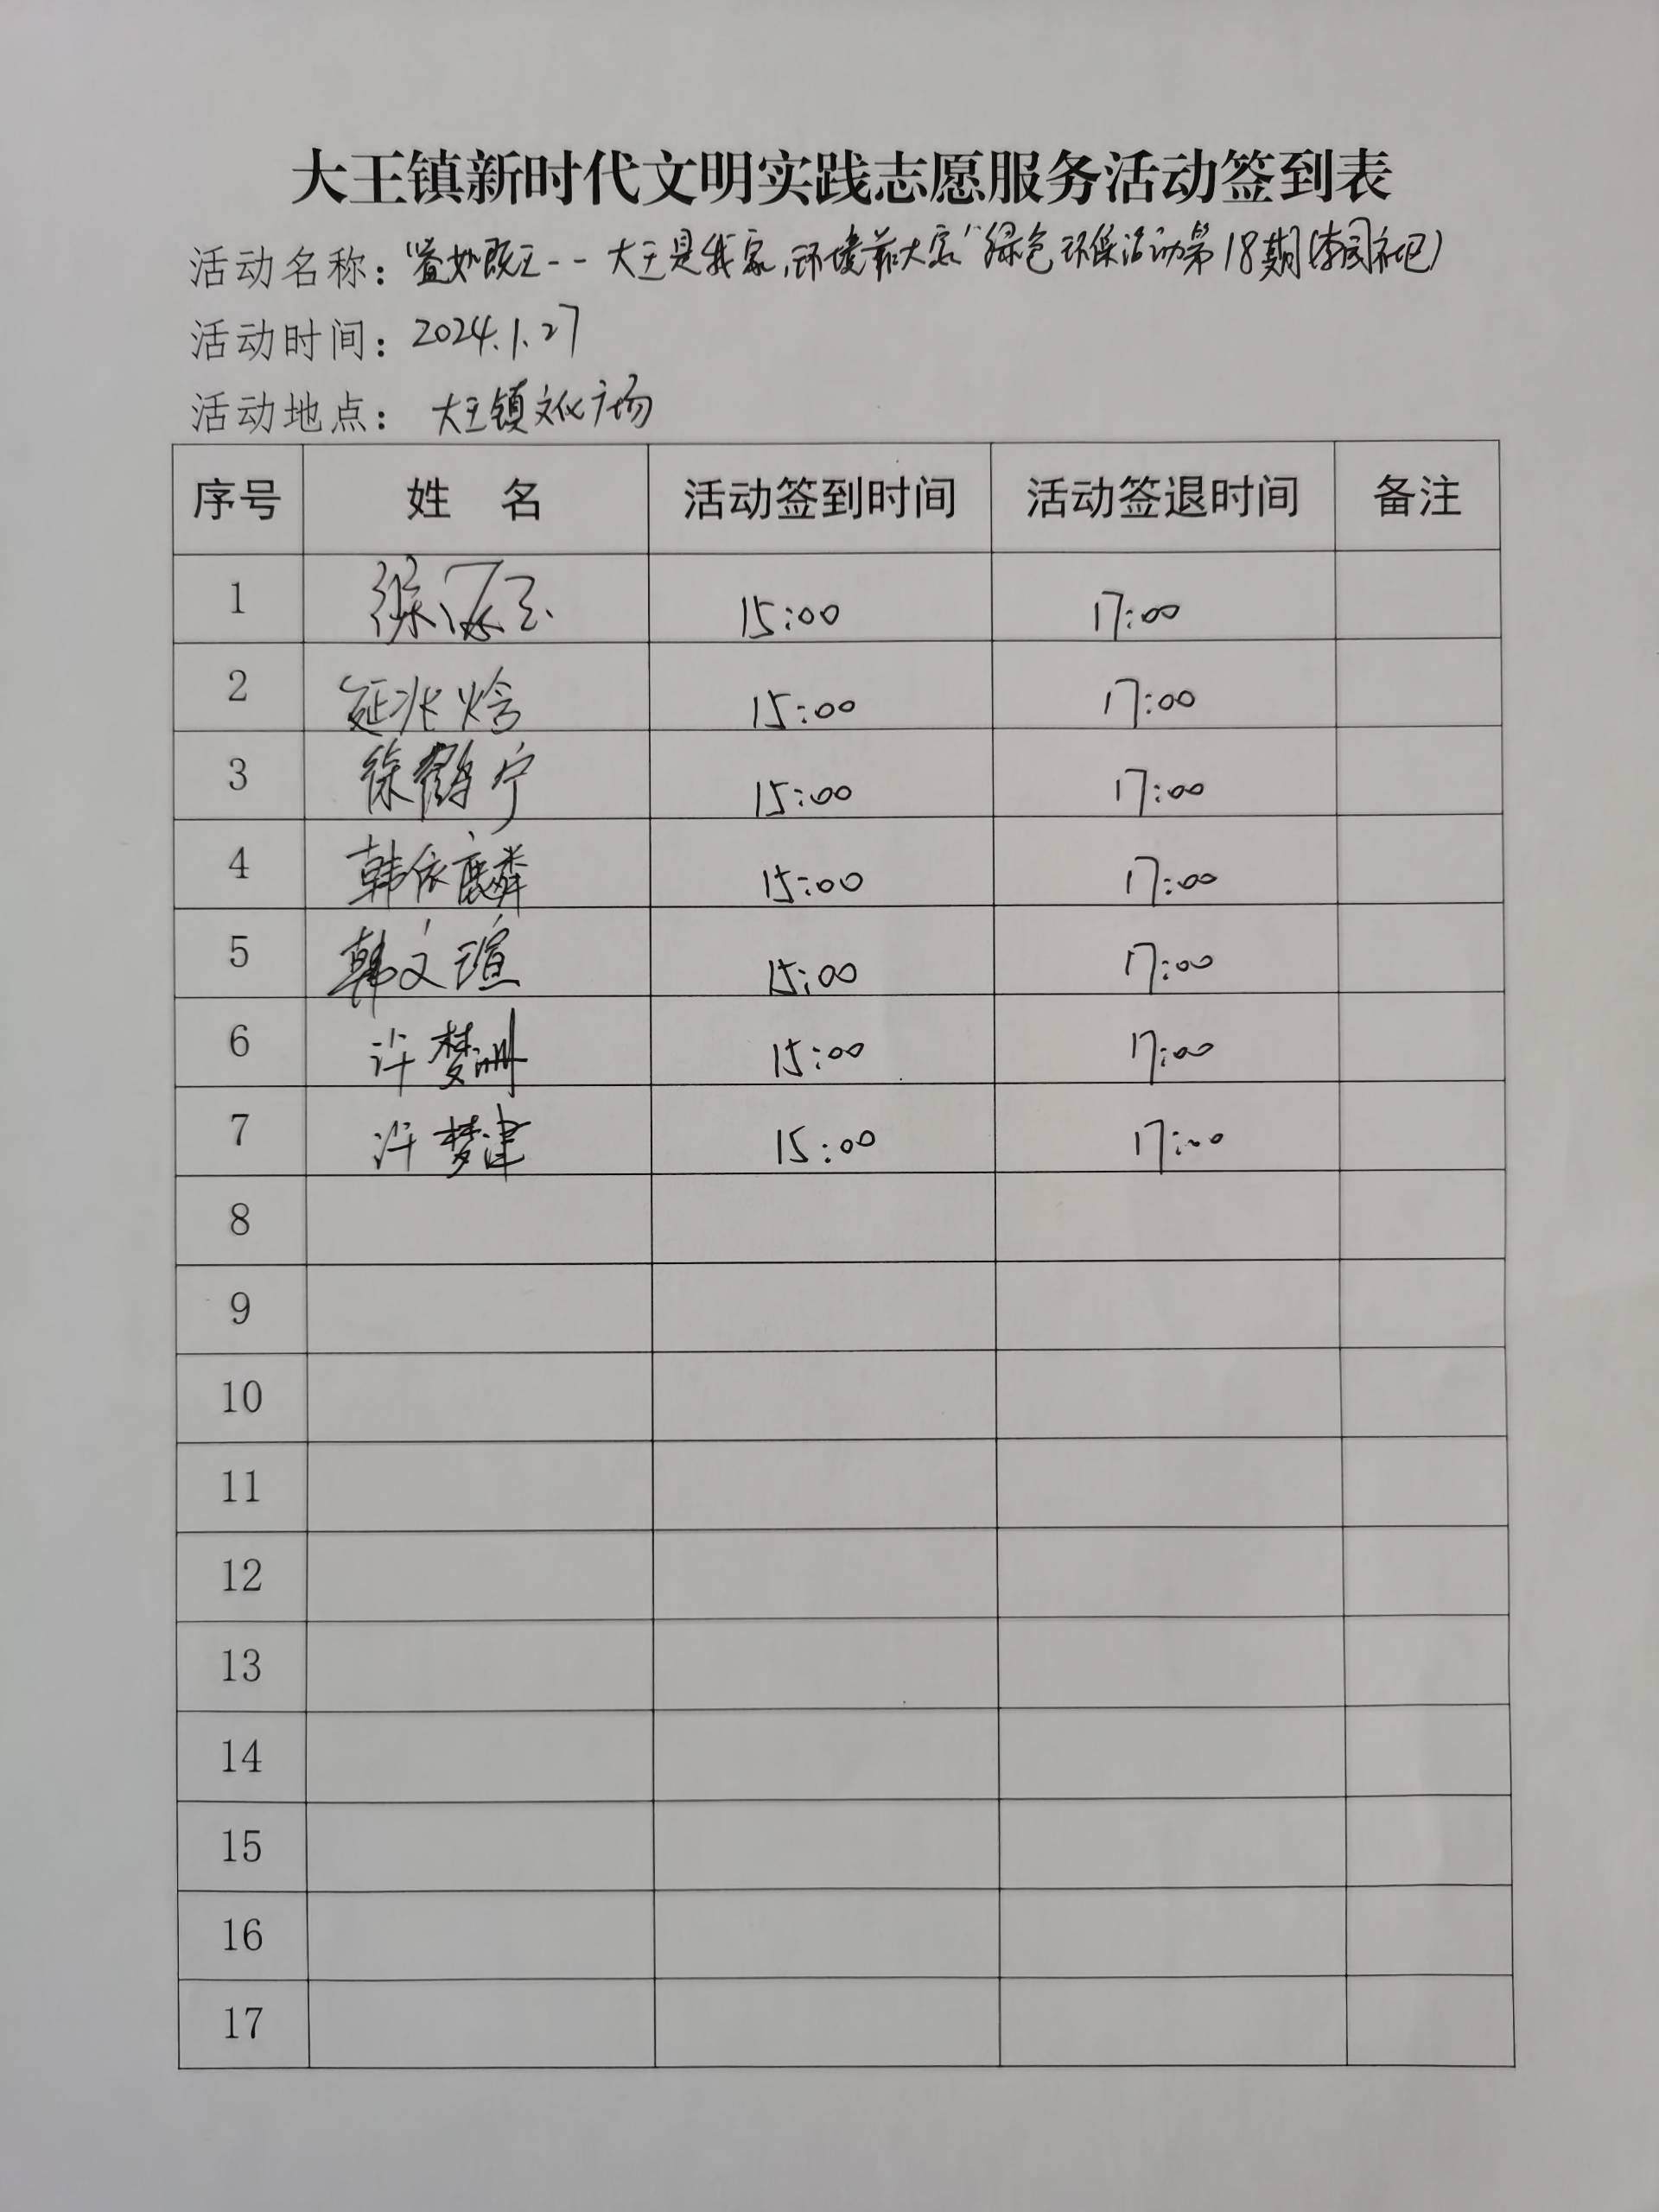 大王镇新时代文明实践志愿服务活动签到表
活动名称："暨如既王--大王是我家,环境靠大家"绿色环保活动第18期(李园社区)
活动时间：2024.1.27
活动地点：大王镇文化广场
序号 姓 名 活动签到时间 活动签退时间 备注
1 15:00 17:00
2 延兆焓 15:00 17:00
3 徐鹤宁 15:00 17:00
4 韩依麟 15:00 17:00
5 韩文瑄 15:00 17:00
6 许梦洲 15:00 17:00
7 许梦津 15:00 17:00
8
9
10
11
12
13
14
15
16
17